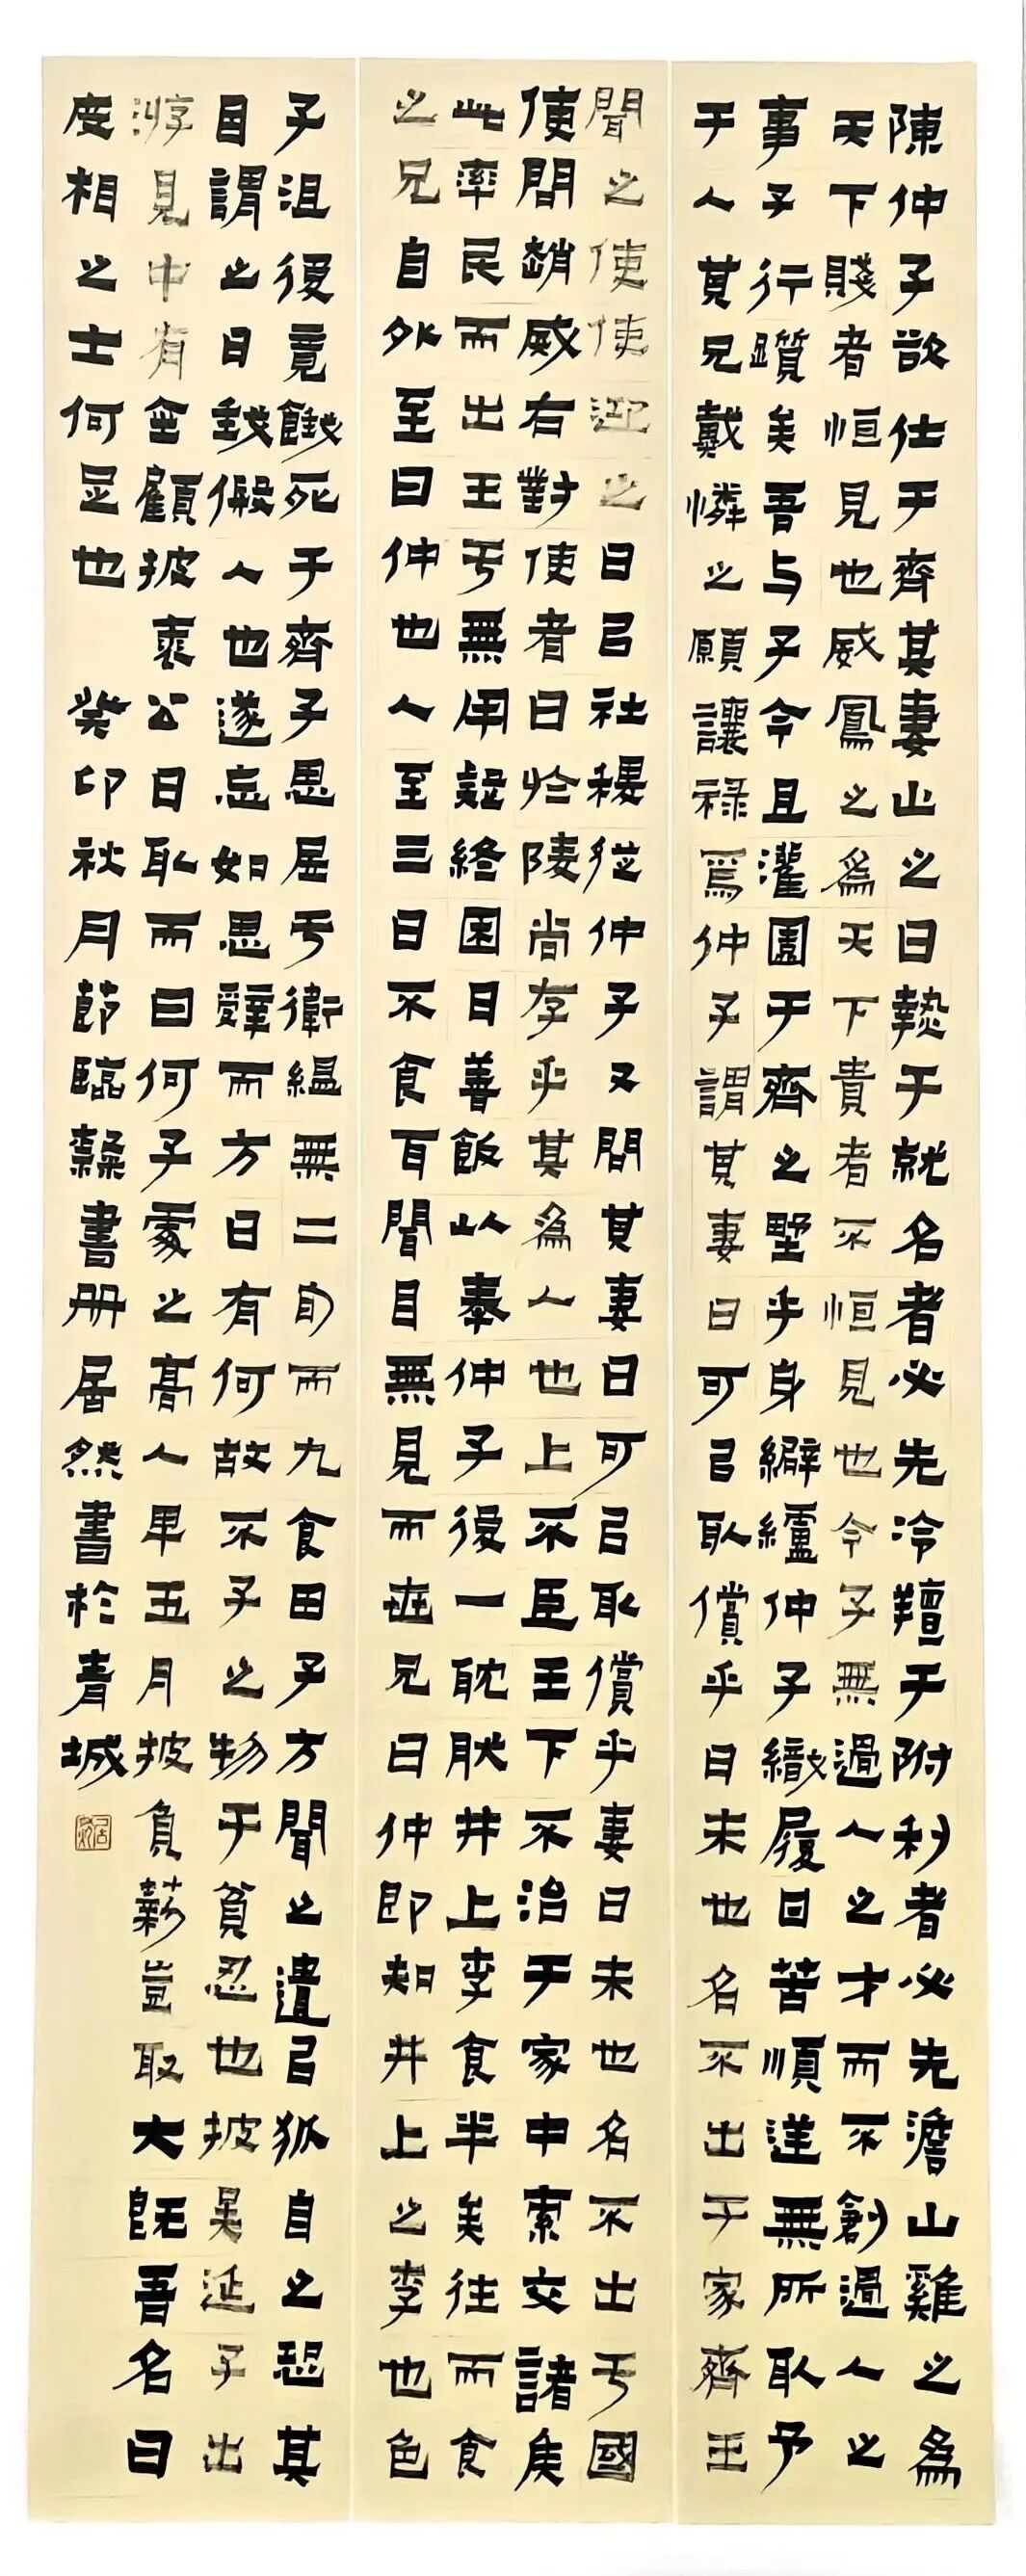 陳仲子欲仕于齊其妻止之曰埶于就名者必先冷羶于附利者必先澹山雞之為
天下賤者恒見也威鳳之為天下貴者不恒見也今子無過人之才而不創過人之
事子行躓矣吾与子今且灌園于齊之墅乎身纑仲子織履曰苦順逆無所取予
于人其兄戴憐之願讓祿焉仲子謂其妻曰可㠯取償乎曰未也名不出于家齊王
聞之使使迎之曰㠯社稷從仲子又問其妻曰可㠯取償乎妻曰未也名不出亏國
使問趙威右對使者曰於陵尚存乎其為人也上不臣王下不治于家中索交諸矦
此率民而出王亏無用疑終園日善飯以奉仲子後一耽井上李食半矣往而食
之兄自外至曰仲也人至三日不食耳聞目無見而兄曰仲即井上之李也色
子沮後竟餓死于齊子思居亏衛縕無二旬而九食田子方聞之遺㠯狐自之恐其
目謂之曰錢假人也遂忘如思辭而方曰有何故不子之物于貧忍也披吳延子出
游見中有金顧披裘公曰取而曰何子處之高人早五月披負薪豈取大既吾名曰
皮相之士何足也 癸卯秋月節臨隸書冊居然書於青城
居然